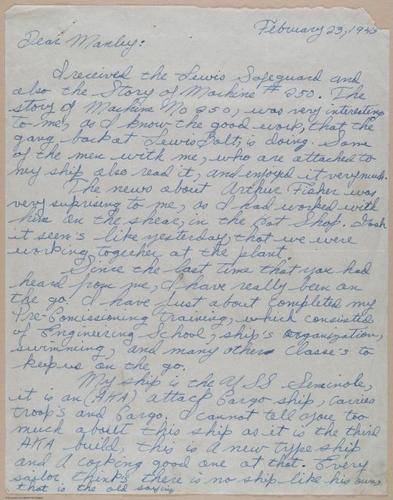 February 23, 194
Dear Manley:
I received the Lewis Safeguard and
also the Story of Machine # 250. The
story of Machine No 250, was very interesting
to me, as I know the good work, that the
gang back at Lewis Bolt, is doing. Some
of the men with me, who are attached to
my ship also read it, and enjoyed it very much.
The news about Arthur Fisher was
very suprising to me, as I had worked with
him on the shear, in the Bolt Shop. Gosh
it seem's like yesterday, that we were
working together at the plant.
Since the last time that you had
heard from me, I have really been on
the go. I have just about completed my
Pre-Comissioning Training, which consisted
of Engineering School, ship's organization,
swimming, and many other Classe's to
keep us on the go.
My ship is the U.S.S. Seminole,
it is an (AKA) attack Cargo ship, carries
troop's and Cargo. I cannot tell you too
much about this ship as it is the third
AKA build, this is a new type ship
and a corking good one at that. Every
sailor thinks there is no ship like his own
that is the old saying